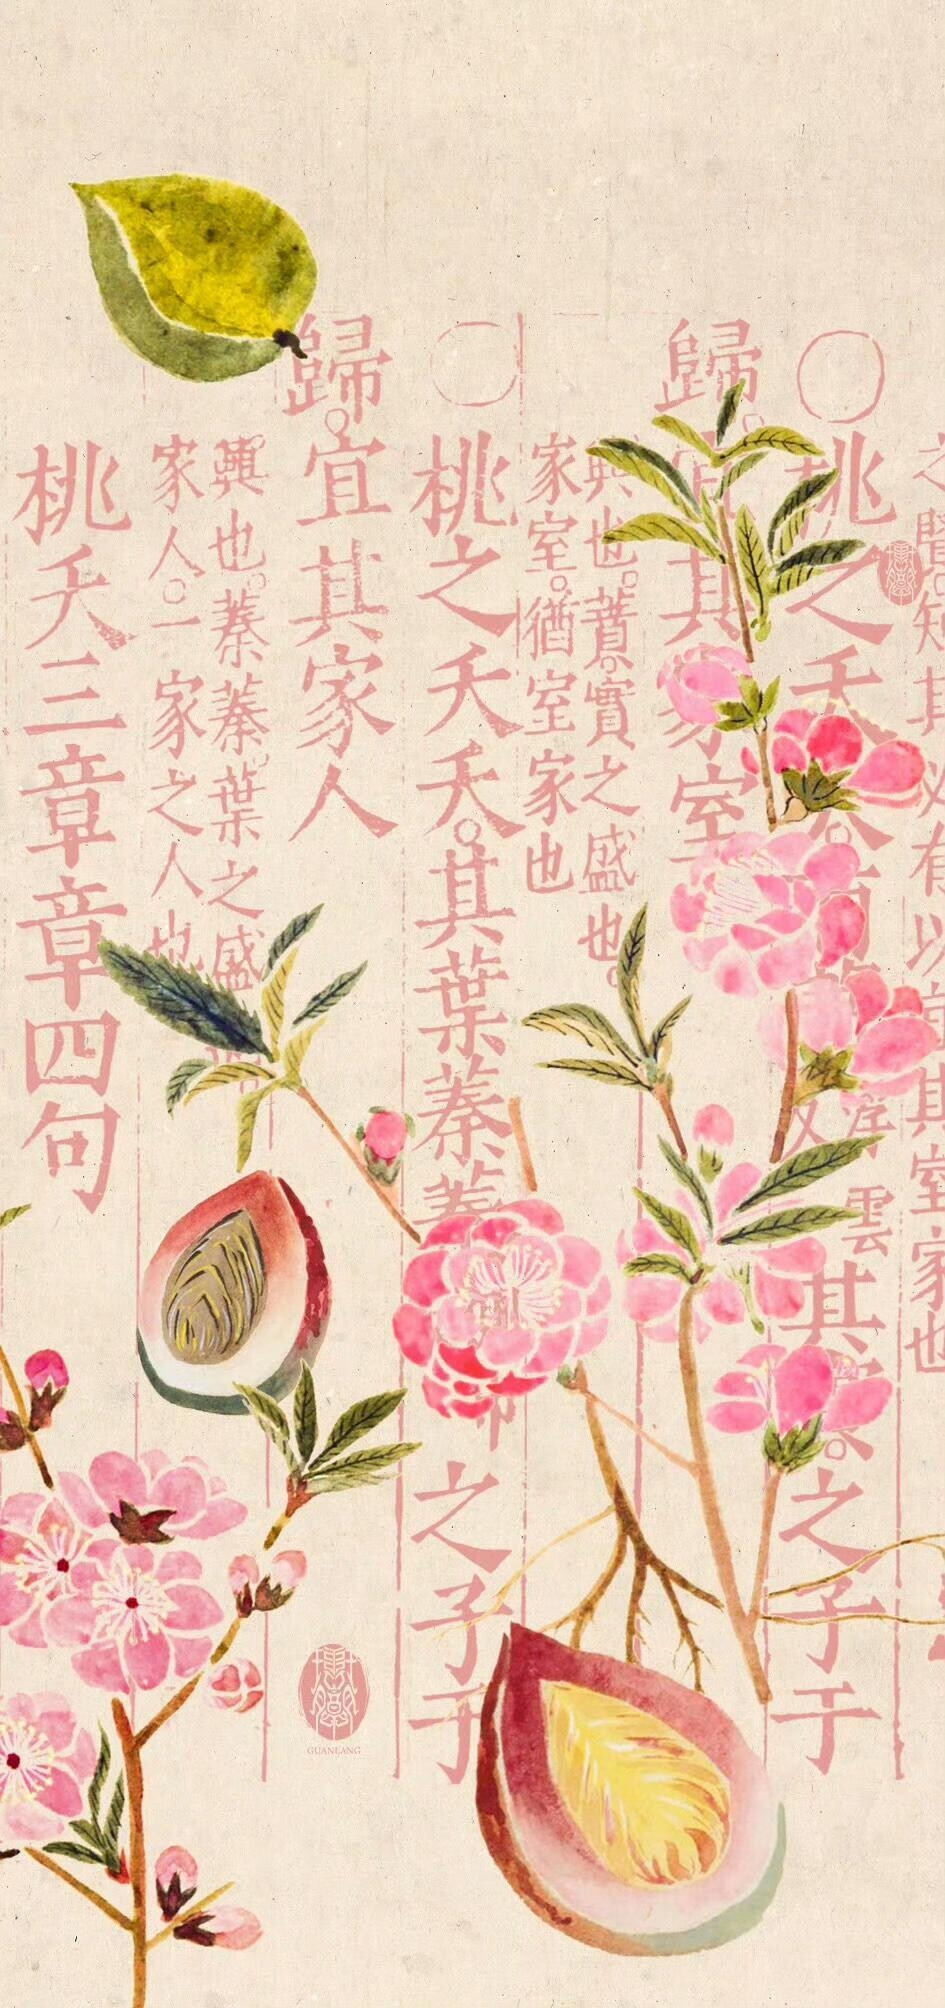 之
知其必有以
其室家也
○桃之夭
浮雲
其
之子于
歸
其家室
興也蕡實之盛也
家室猶室家也
○桃之夭夭其葉蓁蓁
之子于
歸宜其家人
興也蓁蓁葉之盛
家人一家之人也
桃夭三章章四句
GUANLANG